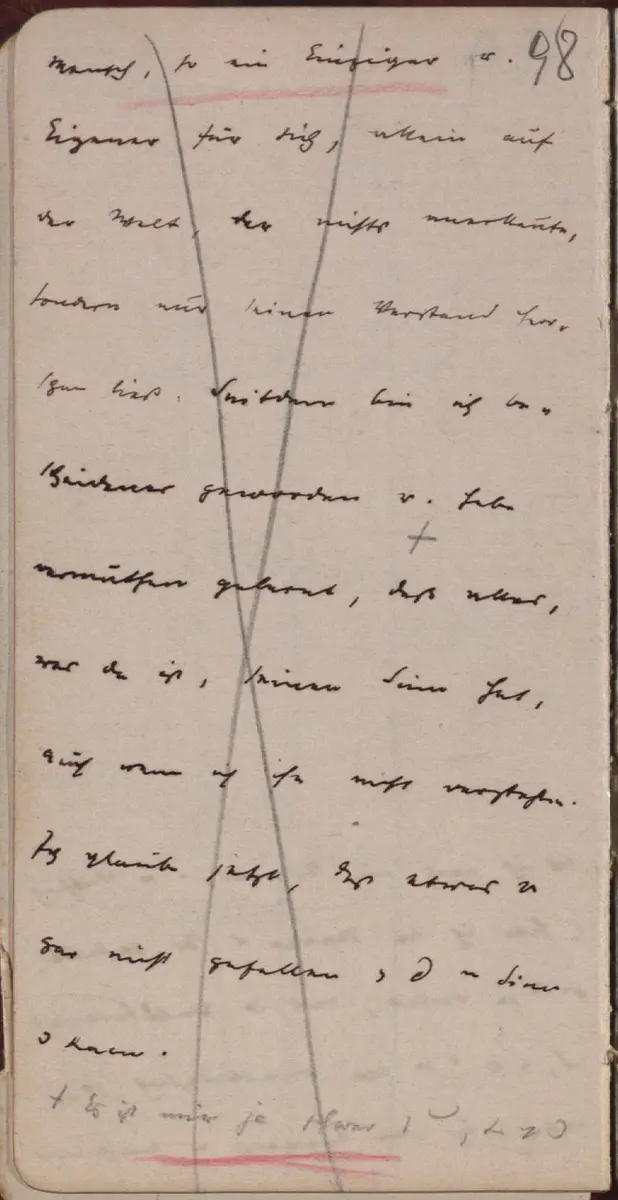 98
Mensch, so ein Einziger u.
Eigener für sich, allein auf
der Welt, der nichts anerkannte,
sondern nur seinen Verstand sor-
gen ließ. Seitdem bin ich be-
scheidener geworden u. habe
vermuthen gelernt, daß alles,
was da ist, seinen Sinn hat,
auch wenn ich ihn nicht verstehe.
Ich glaube jetzt, daß etwas
gar nicht gefallen Sinn
kann.
+ Es ist mir ja schwer